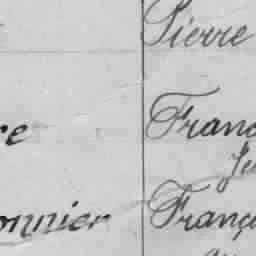 Pierre
re Franc
Je
onnier Franç